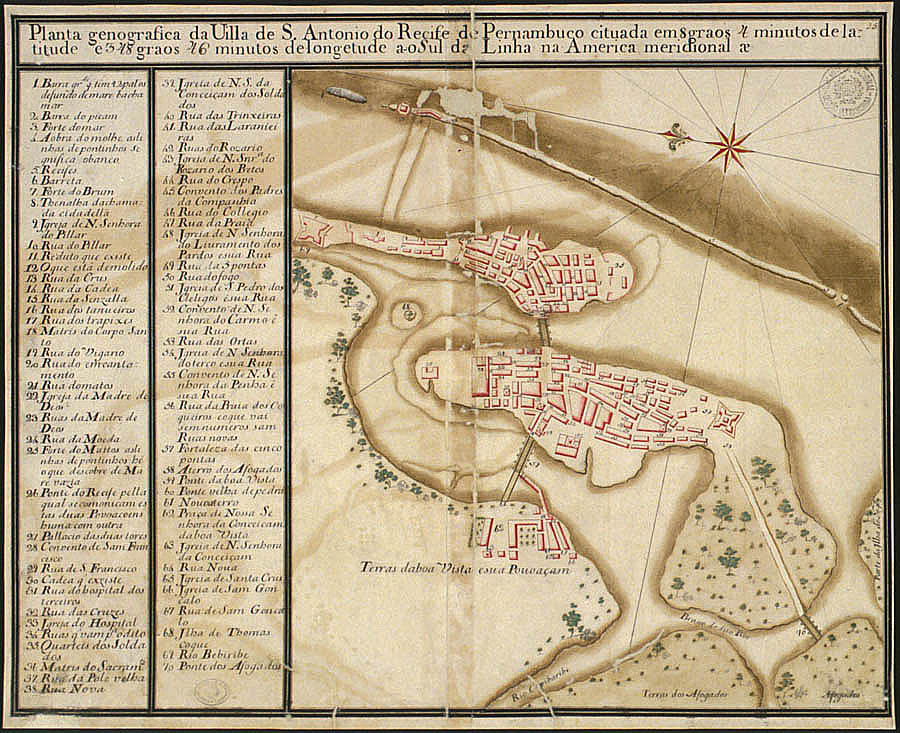 Planta genografica da Uilla de S. Antonio do Recife de Pernambuco cituada em 8 graos 4 minutos de la:
titude e 348 graos 46 minutos de longetude ao Sul da Linha na America meridional æ
1. Barra
mar
2. Barra do picam
3. Forte do mar
4. A obra do molhe asli
nhas de pontinhos se
gnifica o banco
5. Recifes
6. Barreta
7. Forte do Brum
8. da chama
da cidadella
9. Igreja de N. Senhora
do Pillar
10. Rua do Pillar
11. Reduto que existe
12. O que está demolido
13. Rua da Crus
14. Rua da Cadea
15. Rua do Senzalla
16. Rua dos tanueiros
17. Rua dos trapixes
18. Matris do Corpo San
to
19. Rua do Vigario
20. Rua do
mento
21. Rua do matos
22. Igreja da Madre de
Deos
23. Ruas da Madre de
Deos
24. Rua da Moeda
25. Forte do Mattos asli
nhas de pontinhos hé
o que descobre de Ma
re vazia
26. Ponte do Recife pella
qual
tas duas Povoacoens
huma com outra
27. Pallacio das duas tores
28. Convento de Sam Fran
cisco
29. Rua de S. Francisco
30. Cadea q existe
31. Rua do hospital dos
terceiros
32. Rua das Cruzes
33. Igreja do Hospital
34. Ruas q
35. Quarteis dos Solda
dos
36. Matris do Sacram.º
37. Rua da Polo velha
38. Rua Nova
39. Igreia de N. S. da
Conceiçam dos Solda
dos
40. Rua das Trinxeiras
41. Rua das Laraniei
ras
42. Ruas do Rozario
43. Igreja de N. Snrª do
Rozario dos Pretos
44. Rua do Crespo
45. Convento dos Padres
da Companhia
46. Rua do Collegio
47. Rua da Praia
48. Igreja de N. Senhora
do Liuramento dos
Pardos e sua Rua
49. Rua da 5 pontas
50. Rua do fogo
51. Igreja de S. Pedro dos
Clerigos e sua Rua
52. Convento de N. Se
nhora do Carmo e
sua Rua
53. Rua das Ortas
54. Igreja de N. Senhora
do terco e sua Rua
55. Convento de N. Se
nhora da Penha e
sua Rua
56. Rua da Praia dos Co
queiros e o que vai
sem numeros sam
Ruas novas
57. Fortaleza das cinco
pontas
58. Aterro dos Afogados
59. Ponte da boa Vista
60. Ponte velha de pedra
61. Novo aterro
62. Praça de Nossa Se
nhora da Conceicam
da boa Vista
63. Igreja de N. Senhora
da Conceicam
64. Rua Nova
65. Igreja de Santa Crus
66. Igreja de Sam Gon
calo
67. Rua de Sam Gonca
lo
68. Ilha de Thomas
Coque
69. Rio Bebiribe
70. Ponte dos Afogados
Terras da boa Vista e sua Povoaçam
Rio Capibaribe
Terras dos Afogados
Afogados